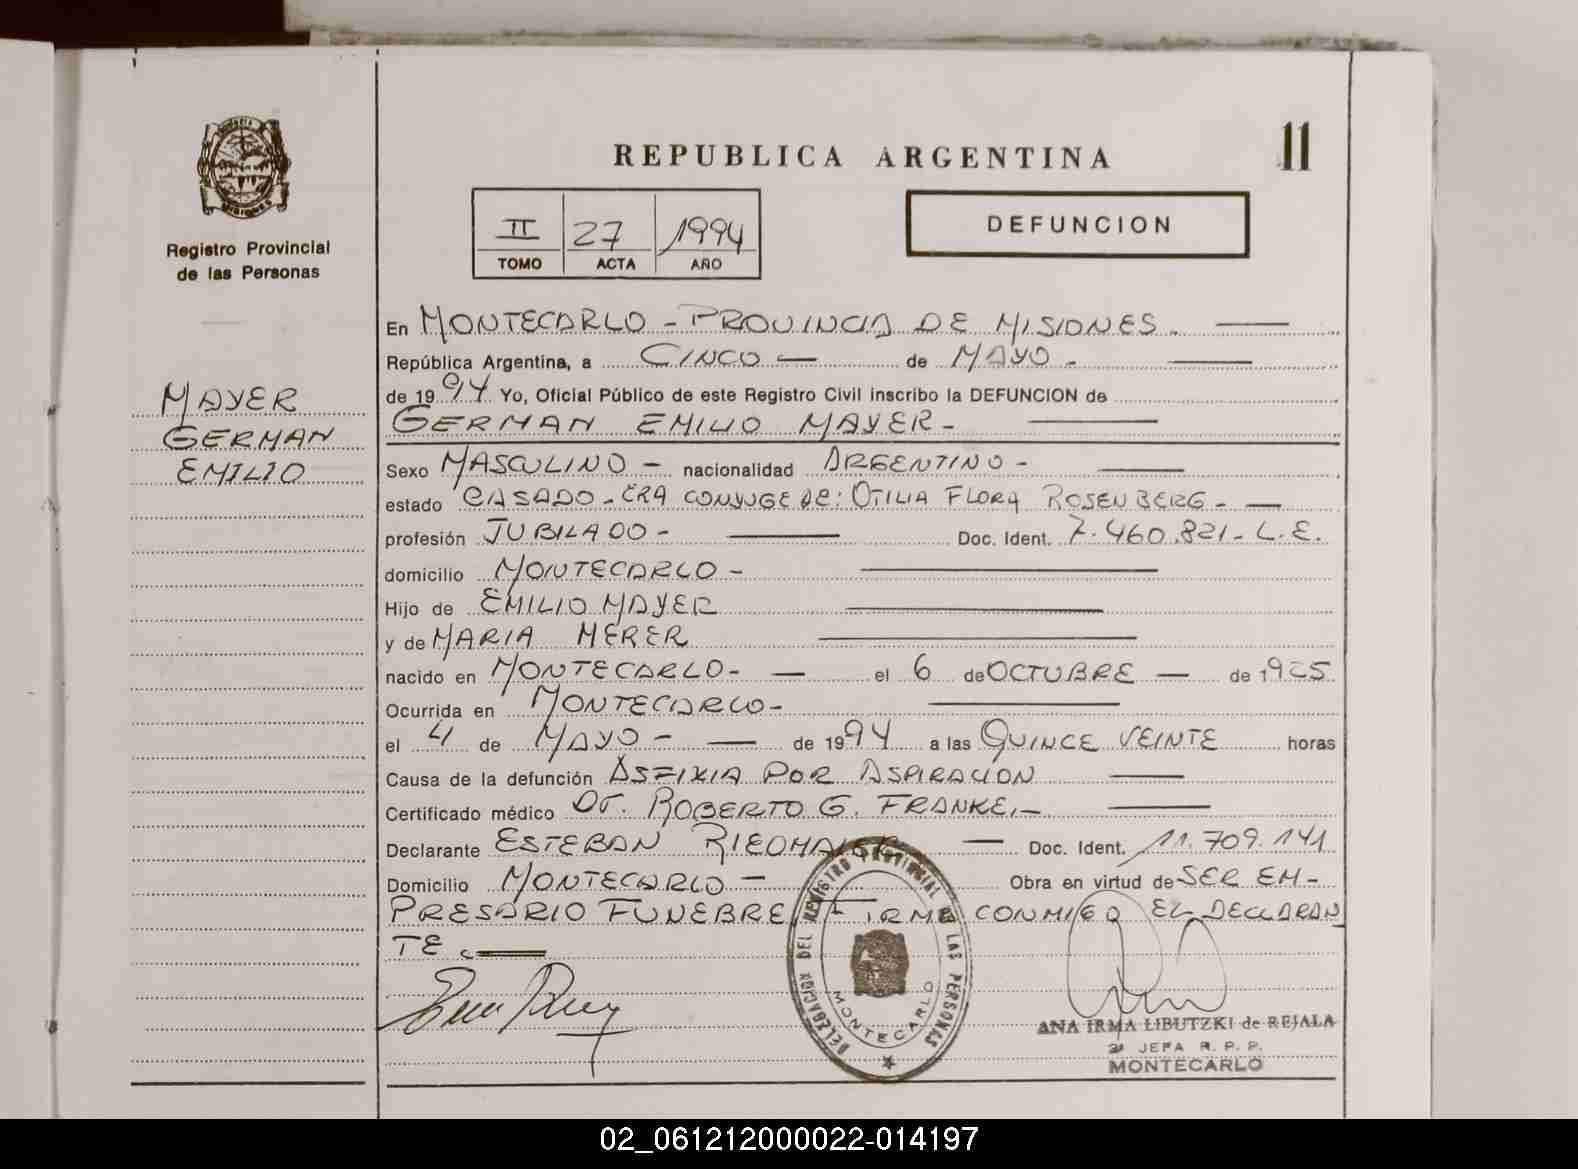 REPUBLICA ARGENTINA
11
Registro Provincial
de las Personas
II 27 1994
TOMO ACTA AÑO
DEFUNCION
MAYER
GERMAN
EMILIO
En MONTECARLO - PROVINCIA DE MISIONES.
República Argentina, a CINCO — de MAYO -
de 1994 Yo, Oficial Público de este Registro Civil inscribo la DEFUNCION de
GERMAN EMILIO MAYER -
Sexo MASCULINO - nacionalidad ARGENTINO -
estado CASADO - ERA CONYUGE DE: OTILIA FLORA ROSENBERG -
profesión JUBILADO - Doc. Ident. 7.460.821 - L.E.
domicilio MONTECARLO -
Hijo de EMILIO MAYER
y de MARIA HERER
nacido en MONTECARLO - el 6 de OCTUBRE — de 1925
Ocurrida en MONTECARLO -
el 4 de MAYO - de 1994 a las QUINCE VEINTE horas
Causa de la defunción ASFIXIA POR ASPIRACION
Certificado médico Dr. ROBERTO G. FRANKE.-
Declarante ESTEBAN RIEDMAIER — Doc. Ident. 11.709.141
Domicilio MONTECARLO - Obra en virtud de SER EM-
PRESARIO FUNEBRE. FIRMA CONMIGO EL DECLARAN
TE
DELEGACION DEL REGISTRO PROVINCIAL DE LAS PERSONAS
MONTECARLO
ANA IRMA LIBUTZKI de REJALA
JEFA R. P. P.
MONTECARLO
02_061212000022-014197